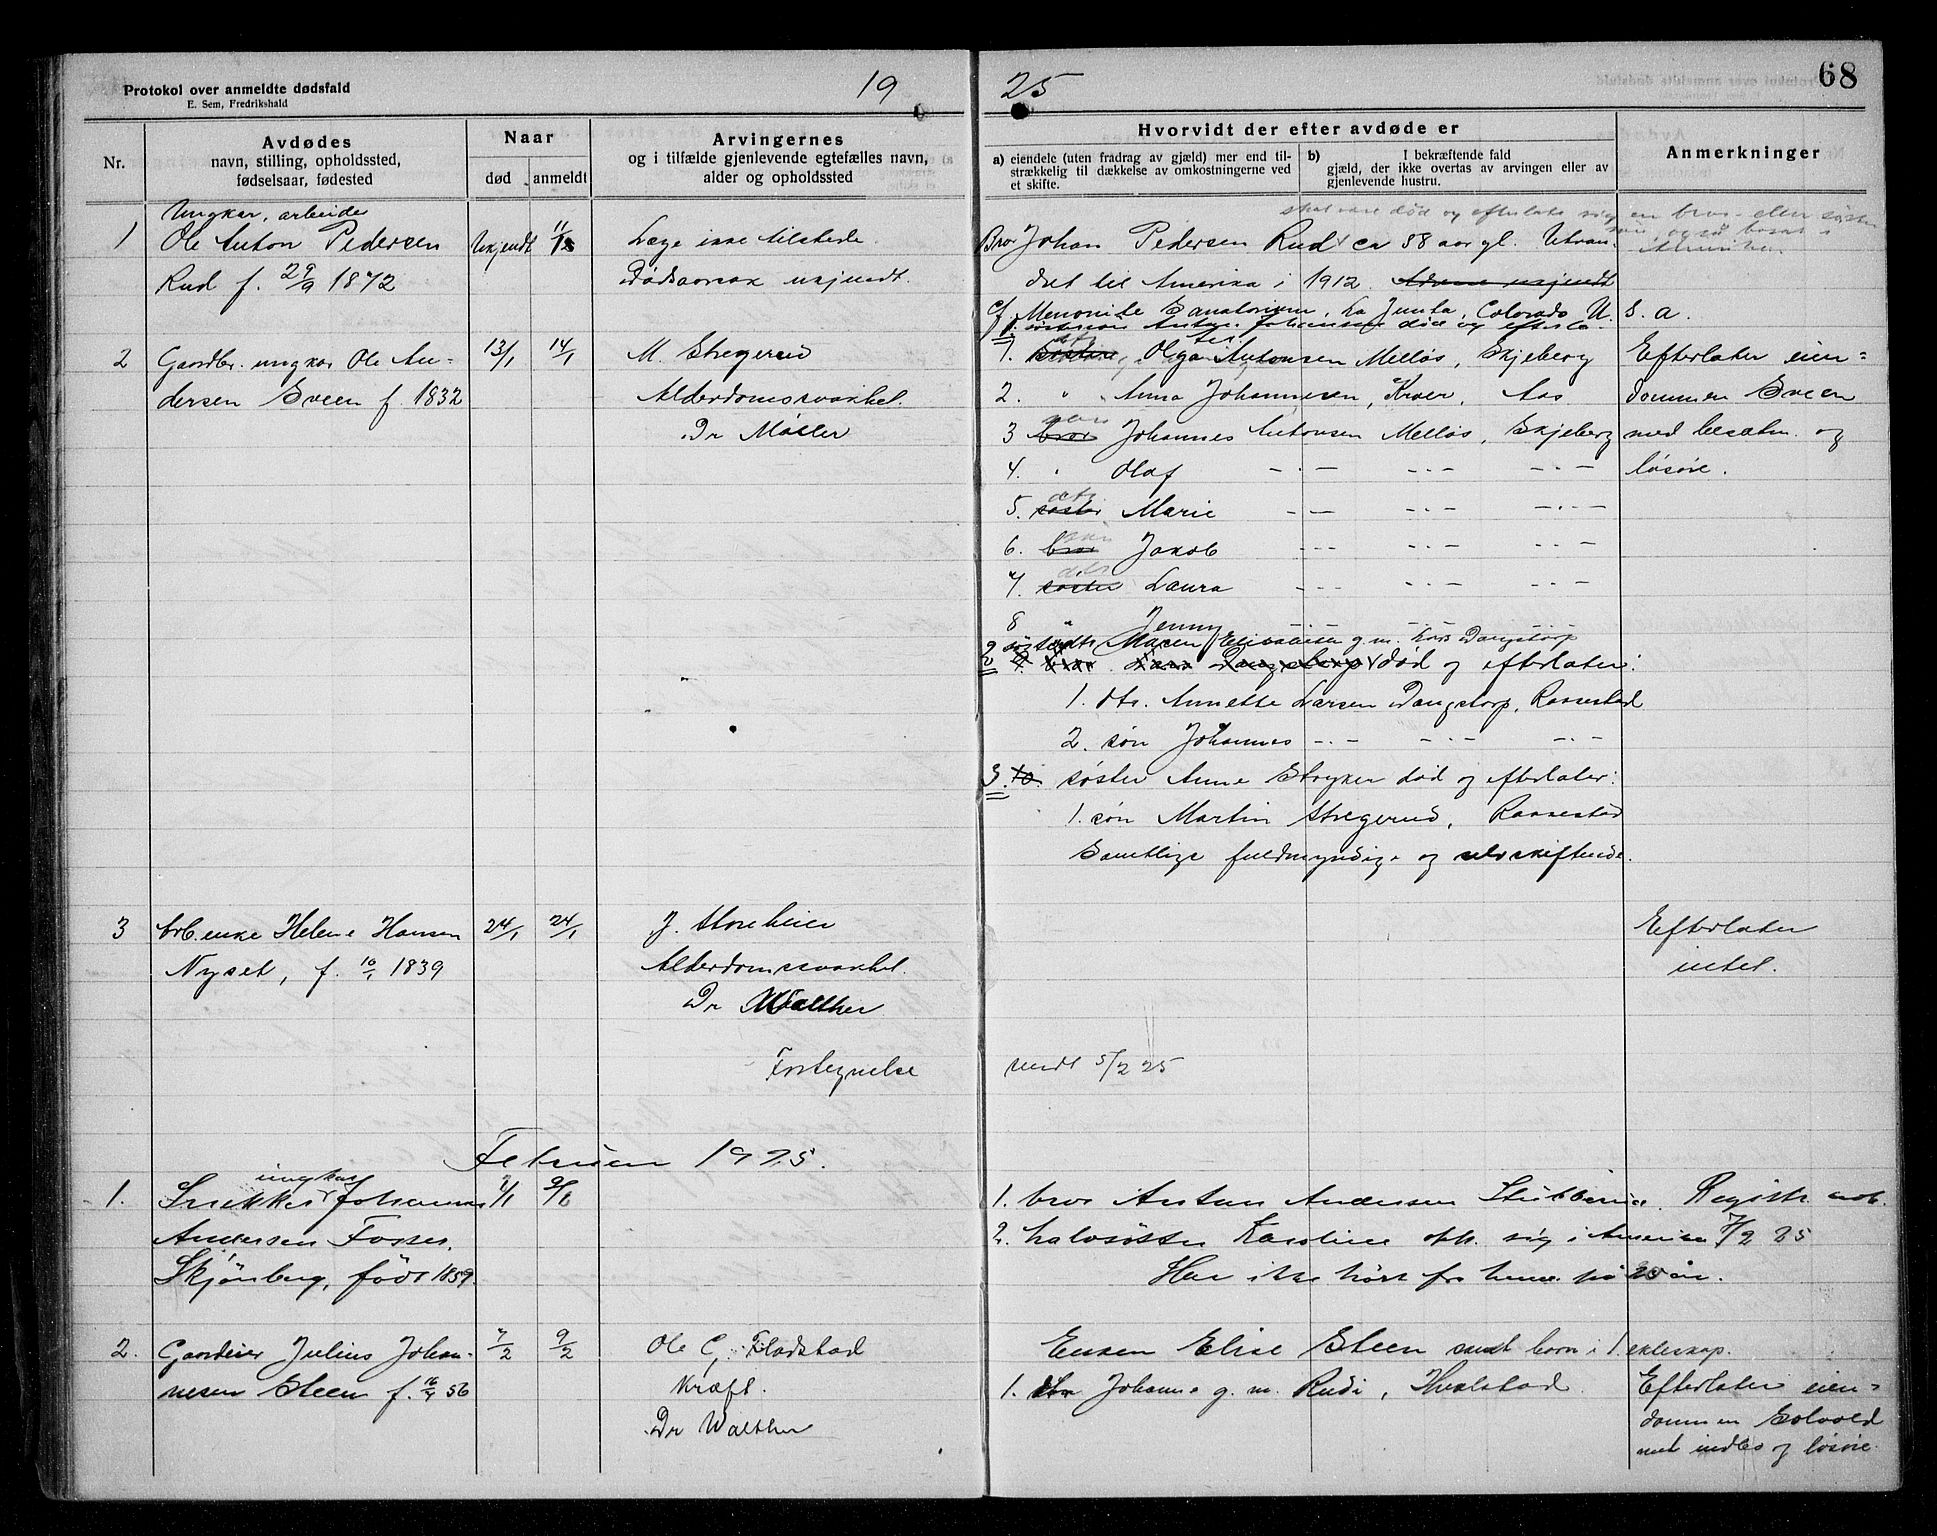 Protokol over anmeldte dødsfald
E. Sem, Fredrikshald
19 25
68
Nr.
Avdødes
navn, stilling, opholdssted,
fødselsaar, fødested
Naar
død
anmeldt
Arvingernes
og i tilfælde gjenlevende egtefælles navn,
alder og opholdssted
Hvorvidt der efter avdøde er
a) eiendele (uten fradrag av gjæld) mer end til-
strækkelig til dækkelse av omkostningerne ved
et skifte.
b) I bekræftende fald
gjæld, der ikke overtas av arvingen eller av
gjenlevende hustru.
Anmerkninger
Ungkar, arbeider
1 Ole Anton Pedersen Ukjendt
Rud f. 29/9 1872
Læge ikke tilstede.
Dødsaarsak ukjendt.
skal være død og efterlate sig en bror eller søster
Bror Johan Pedersen Rud ca 58 aar gl. Utvan-
dret til Amerika i 1912. Adresse ukjendt
Menonite Sanatorium, La Junta, Colorado U. S. a.
død og efterla-
ter
2 Gaardbr. ungkar Ole An- 13/1 14/1
dersen Sveen f. 1832
M. Stregerud
Alderdomssvakhet.
Dr Møller
1. søster Olga Antonsen Melløs, Skjeberg
2. " Anna Johannesen, Kroer, Aas
3 bror Johannes Antonsen Melløs, Skjeberg
4. " Olaf — · — — · — — · —
5. søster Marie — · — — · — — · —
6. bror Jakob — · — — · — — · —
7. søster Laura — · — — · — — · —
8 Jenny
Maren Elisabeth g. m. Lars Dangstorp
død og efterlater:
1. dtr. Annette Larsen Dangstorp, Rakkestad
2. søn Johannes — · — — · — — · —
3. 10. søster Anne Stryken død og efterlater:
1. søn Martin Stregerud, Rakkestad
Samtlige fuldmyndige og selvskiftende.
Efterlater eien-
dommen Sveen
med besætn. og
løsøre.
3 Arb. enke Helene Hansen 24/1 24/1
Nyset, f. 10/1 1839
J. Storeheier
Alderdomssvakhet.
Dr Walther
Efterlater
intet.
Fortegnelse sendt 5/2 25
Februar 1925.
ungkar
1. Snekker Johannes
Andersen Fosser,
Skjønberg, født 1859.
1. bror Anton Andersen
2. halvsøster Karoline oph. sig i Amerika
Har ikke hørt fra henne på 20 år.
Registr. avh.
7/2 25
2. Gaardeier Julius Johan- 7/2 9/2
nesen Steen f. 16/4 56
Ole C. Fladstad
Kræft.
Dr Walther
Enken Elise Steen samt barn i 1. ekteskap.
1. dtr Johanne g. m. Rudi, Hvalstad.
Efterlater eien-
dommen Solvold
met indbo og løsøre.